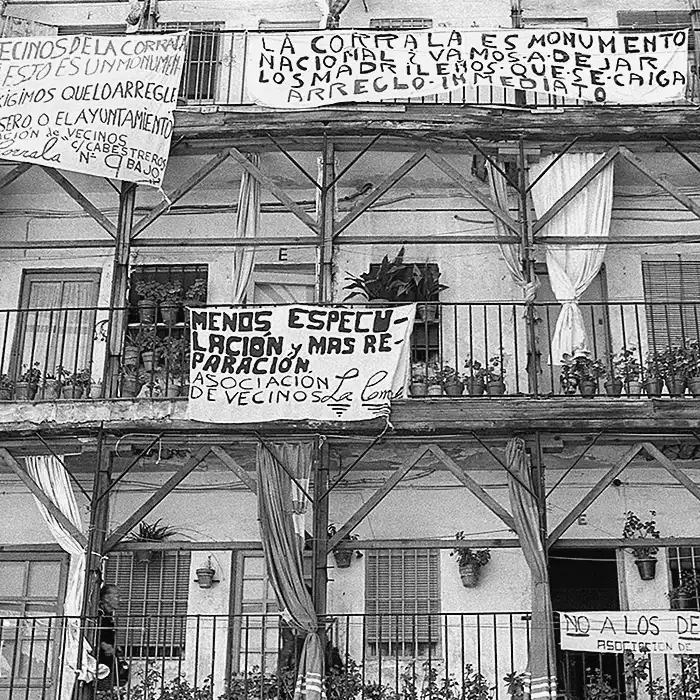 ECINOS DE LA CORRALA
ESTO ES UN MONUMEN
XIGIMOS QUE LO ARREGLE
SERO O EL AYUNTAMIENTO
ACIÓN DE VECINOS
Corrala
C/ CABESTREROS
Nº 9 BAJO
LA CORRALA ES MONUMENTO
NACIONAL ¿VAMOS A DEJAR
LOS MADRILEÑOS QUE SE CAIGA
ARREGLO-INMEDIATO
E
MENOS ESPECU-
LACION y MAS RE-
PARACIÓN.
ASOCIACIÓN
DE VECINOS La
E
NO A LOS DE
ASOCIACION DE